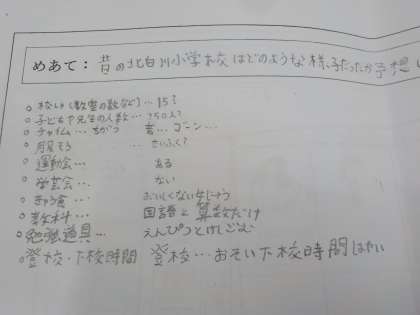 めあて：昔の北白川小学校はどのような様子だったか予想
○校しゃ(教室の数など)…15？
○子どもや先生の人数…750人？
○チャイム…ちがう 昔…ゴーン…
○服そう …せいふく？
○運動会… ある
○学芸会… ない
○きゅう食… おいしくない牛にゅう
○教科… 国語と算数だけ
○勉強道具… えんぴつとけしごむ
○登校・下校時間 登校…おそい下校時間はやい